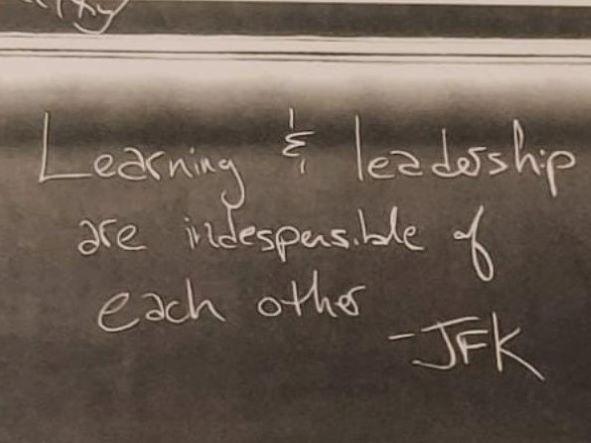 Learning & leadership
are indespensible of
each other
-JFK